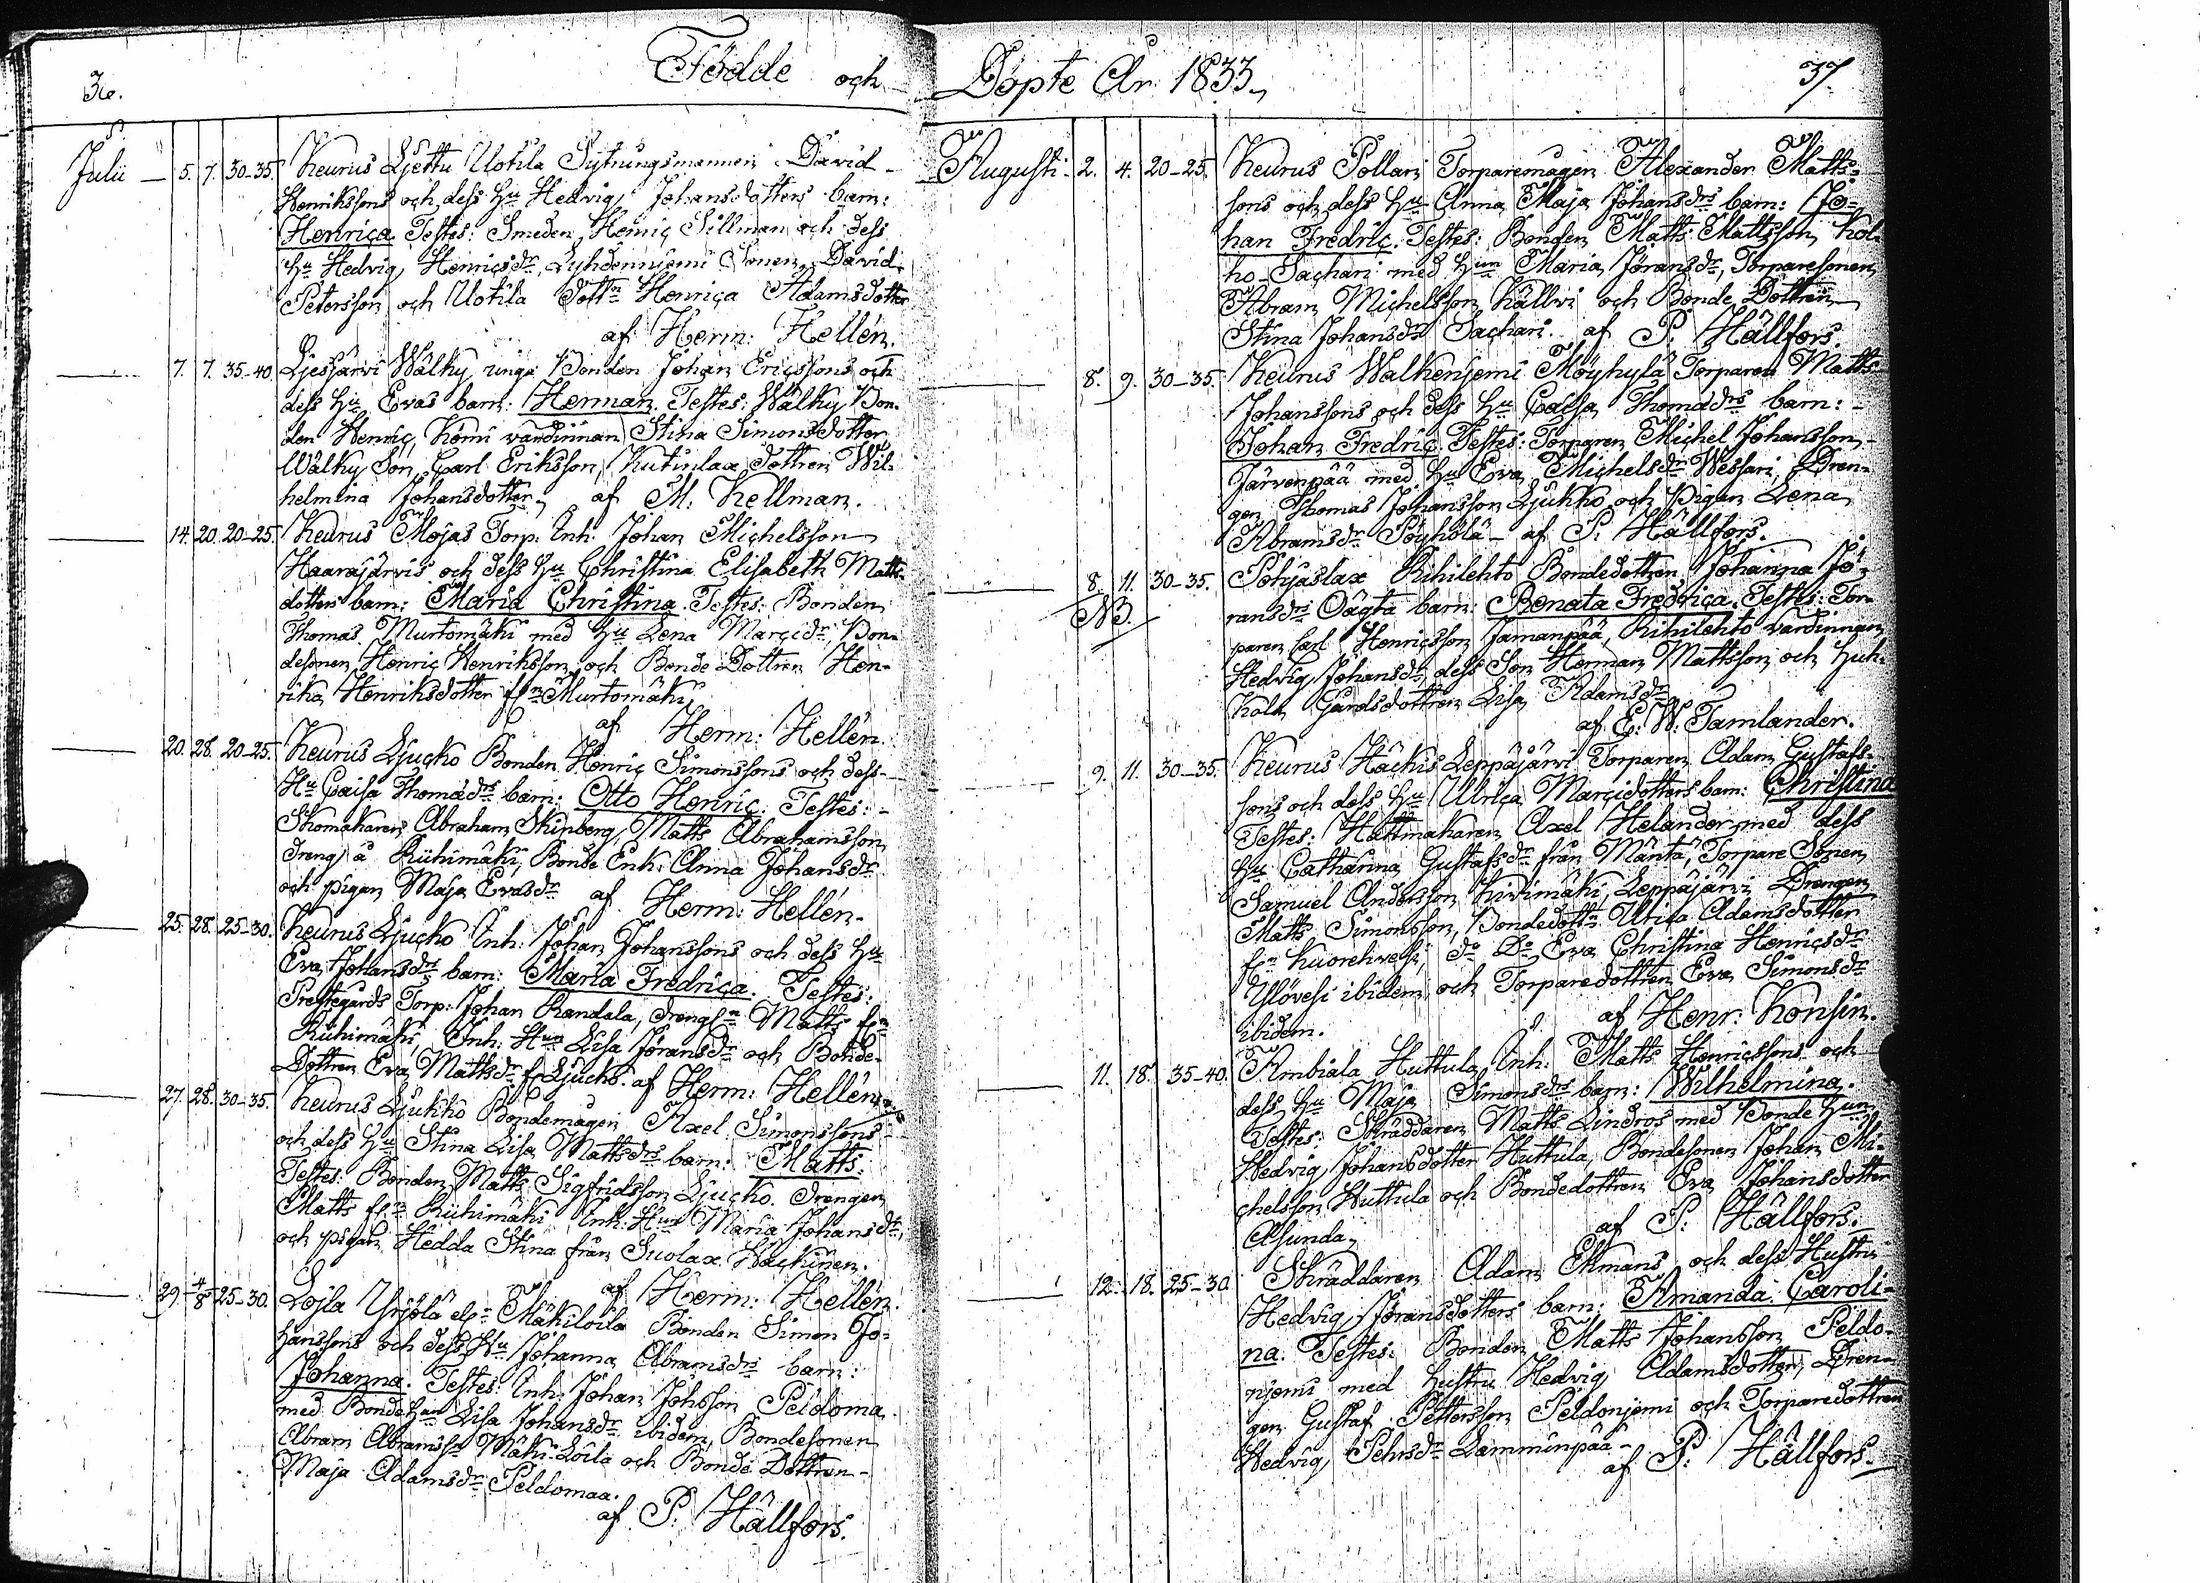 36.
Födde och
Julii 5. 7. 30-35. Keurus Ljettu Uotila Sytnungsmannen David
Henrikssons och dess Hu Hedvig Johansdotters barn:
Henrica. Testes: Smeden Henric Sillman och dess
Hu Hedvig Henricsdr, Lyhdenniemi Sonen David
Petersson och Uotila Dottrn Henrica Adamsdotter
af Herm: Hellén.
7. 7. 35-40 Liesjärvi Wälky unga Bonden Johan Ericssons och
dess Hu Evas barn: Herman. Testes: Wälky Bon-
den Henric, Kömi värdinnan Stina Simonsdotter
Wälky Son Carl Eriksson, Kutinlax dottren Wil-
helmina Johansdotter, af M. Kellman.
14. 20. 20-25. Keurus Mojas Torp. Inh. Johan Michelsson
Haarajärvis och dess Hu Christina Elisabeth Matts-
dotters barn: Maria Christina. Testes: Bonden
Thomas Murtomäki med Hu Lena Marcidr, Bon-
desonen Henric Henriksson och Bonde Dottren Hen-
rika Henriksdotter frn Murtomäki,
af Herm: Hellén.
20. 28. 20-25. Keurus Ljucko Bonden Henric Simonssons och dess
Hu Caisa Thomædrs barn: Otto Henric. Testes:
Skomakaren Abraham Skinberg, Matts Abrahamsson
dreng å Riihimäki, Bonde Enk: Anna Johansdr
och pigan Maja Evasdr af Herm: Hellén.
25. 28. 25-30. Keurus Ljucko Inh: Johan Johanssons och dess Hu
Eva Johansdrs barn: Maria Fredrica. Testes:
Prestegårds Torp: Johan Randala, drengn Matts frn
Riihimäki, Inh: Hun Lisa Jöransdr och Bonde
Dottren Eva Mattsdr fr Ljucko. af Herm: Hellén
27. 28. 30-35. Keurus Ljukko Bondemågen Axel Simonssons
och dess Hu Stina Lisa Mattsdrs barn: Matts.
Testes: Bonden Matts Sigfridsson Ljucko. drengen
Matts frn Riihimäki Inh: Hun Maria Johansdr,
och pigan Hedda Stina från Suolax Hackinen.
af Herm: Hellén.
29. 4/8 25-30. Lojla Yrjölä elr Mäkiloila Bonden Simon Jo-
hanssons och dess Hu Johanna Abramsdrs barn:
Johanna. Testes: Inh: Johan Johsson Peldoma
med Bonde Hun Lisa Johansdr ibidem, Bondesonen
Abram Abramssn Mäki-Loila och Bonde Dottren
Maja Adamsdr Peldomaa.
af P. Hällfors.
Döpte År 1833.
37.
Augusti 2. 4. 20-25. Keurus Pollari Torparemågen Alexander Matts-
sons och dess Hu Anna Maja Johansdrs barn: Jo-
han Fredric. Testes: Bonden Matts Mattsson Kol-
ho Sachari med Hun Maria Jöransdr, Torparesonen
Abram Michelsson Källvi och Bonde Dottren
Stina Johansdr Sachari. af P. Hällfors.
8. 9. 30-35. Keurus Walkeniemi Möyhylä Torparen Matts
Johanssons och dess Hu Caisa Thomædrs barn:
Johan Fredric. Testes: Torparen Michel Johansson
Järvenpää med Hu Eva Michelsdr Wessari, Dren-
gen Thomas Johansson Ljukko och Pigan Lena
Abramsdr Pöyhölä af P. Hällfors.
8. 11. 30-35. Pohjaslax Riihilehto Bondedottren Johanna Jö-
NB. ransdrs Oägta barn: Renata Fredrica. Testes: Tor-
paren Carl Henricsson Jamanpää, Riihilehto värdinnan
Hedvig Johansdr, dess Son Herman Mattsson och Huh-
kola Gårdsdottren Lisa Adamsdr
af E. W. Tamlander.
9. 11. 30-35. Keurus Häckis Leppäjärvi Torparen Adam Gustafs-
sons och dess Hu Ulrica Marcidotters barn: Christina
Testes: Hattmakaren Axel Helander med dess
Hu Catharina Gustafsdr från Mänttä, Torpare Sonen
Samuel Andersson Kivimäki, Leppäjärvi Drengen
Matts Simonsson, Bondedottrn Ulrica Adamsdotter
frn Kuorehvesi, do Do Eva Christina Henricsdr
Ylövesi ibidem, och Torparedottren Eva Simonsdr
ibidem. af Henr: Konsin.
11. 18. 35-40. Ambiala Huttula Inh. Matts Henricssons och
dess Hu Maja Simonsdrs barn: Wilhelmina.
Testes: Skräddaren Matts Lindros med Bonde Hun
Hedvig Johansdotter Huttula, Bondesonen Johan Mi-
chelsson Huttula och Bondedottren Eva Johansdotter
Asunda, af P. Hällfors.
12. 18. 25-30. Skräddaren Adam Ekmans och dess Hustru
Hedvig Jöransdotters barn: Amanda Caroli-
na. Testes: Bonden Matts Johansson Peldo-
njemi med Hustru Hedvig Adamsdotter, Dren-
gen Gustaf Pettersson Peldonjemi och Torparedottren
Hedvig Pehrsdr Lamminpää
af P. Hällfors.